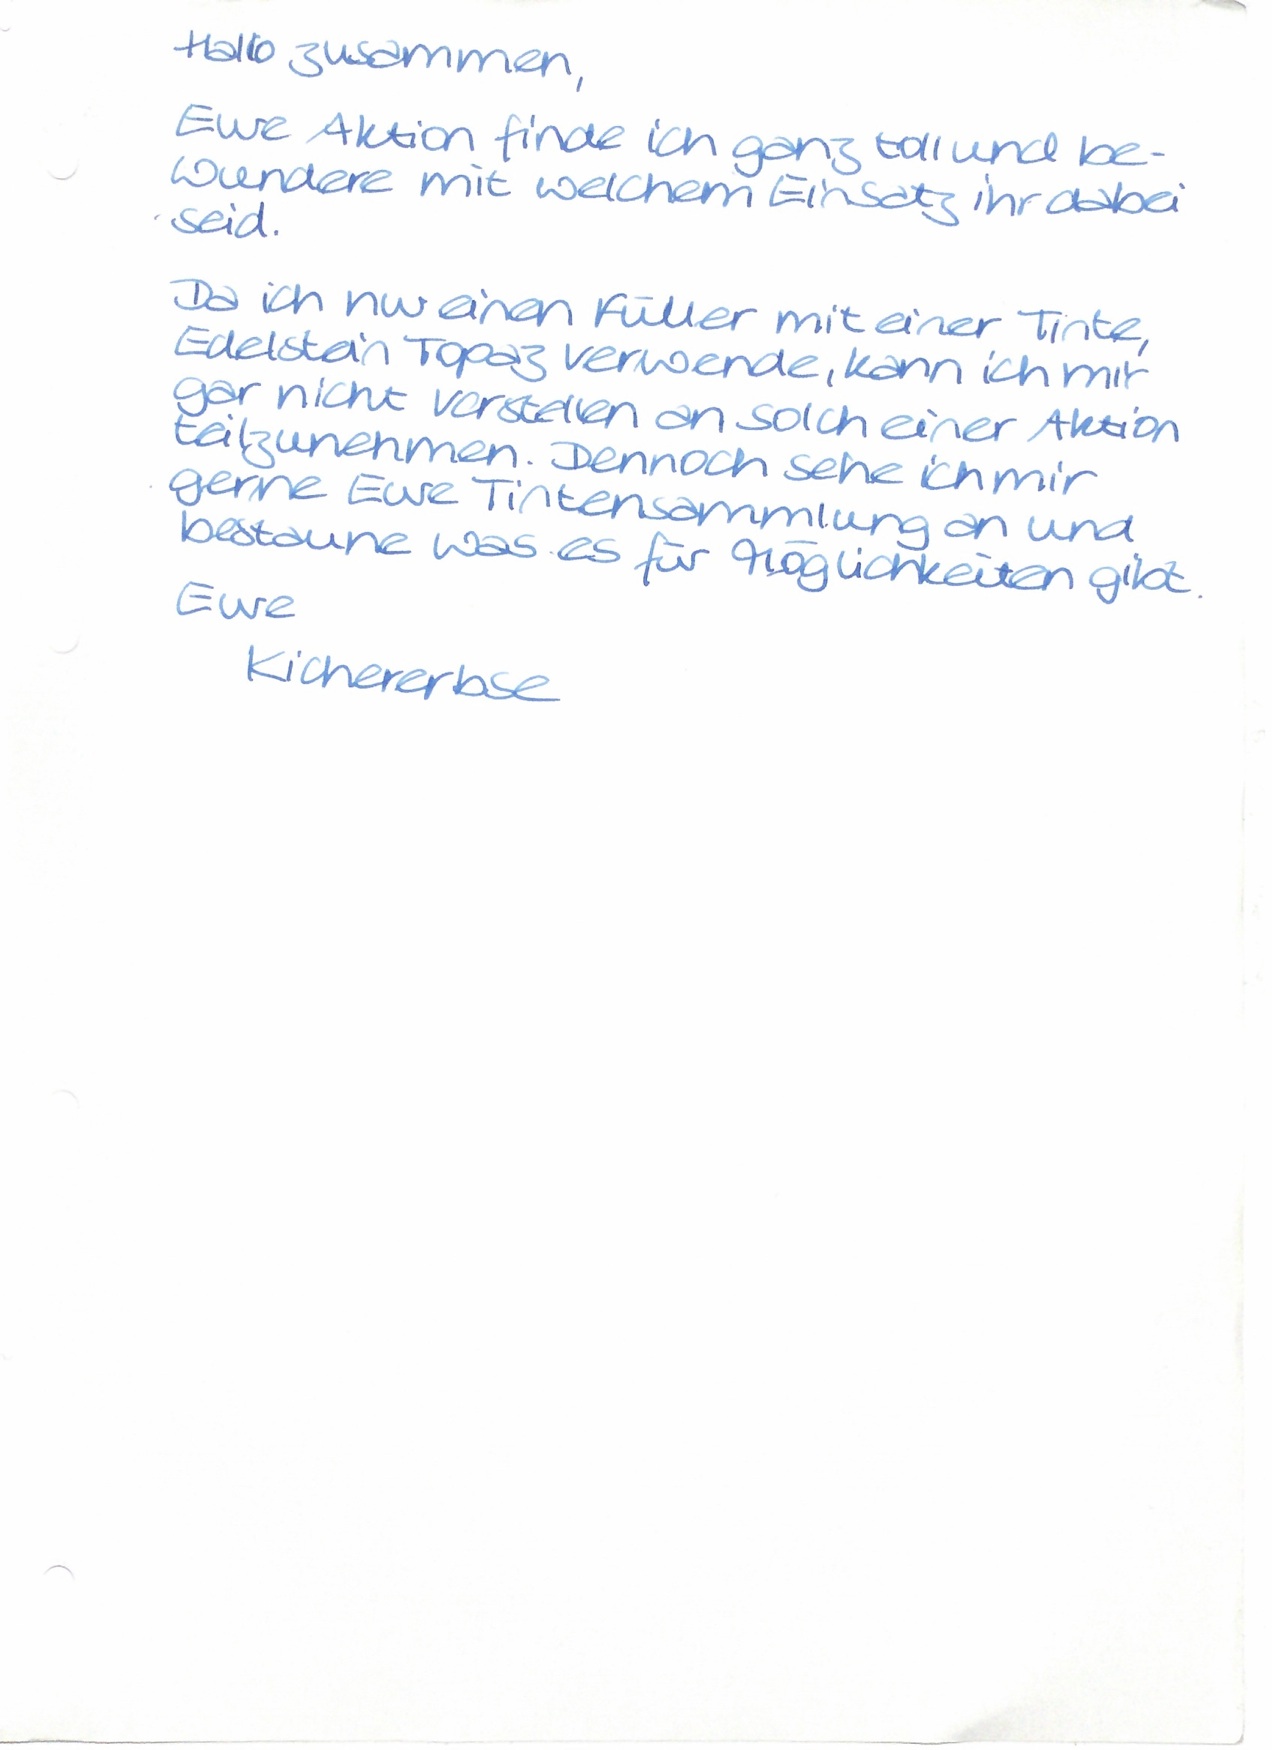 Hallo zusammen,
Eure Aktion finde ich ganz toll und be-
wundere mit welchem Einsatz ihr dabei
seid.
Da ich nur einen Füller mit einer Tinte,
Edelstein Topaz verwende, kann ich mir
gar nicht vorstellen an solch einer Aktion
teilzunehmen. Dennoch sehe ich mir
gerne Eure Tintensammlung an und
bestaune was es für Möglichkeiten gibt.
Eure
Kichererbse